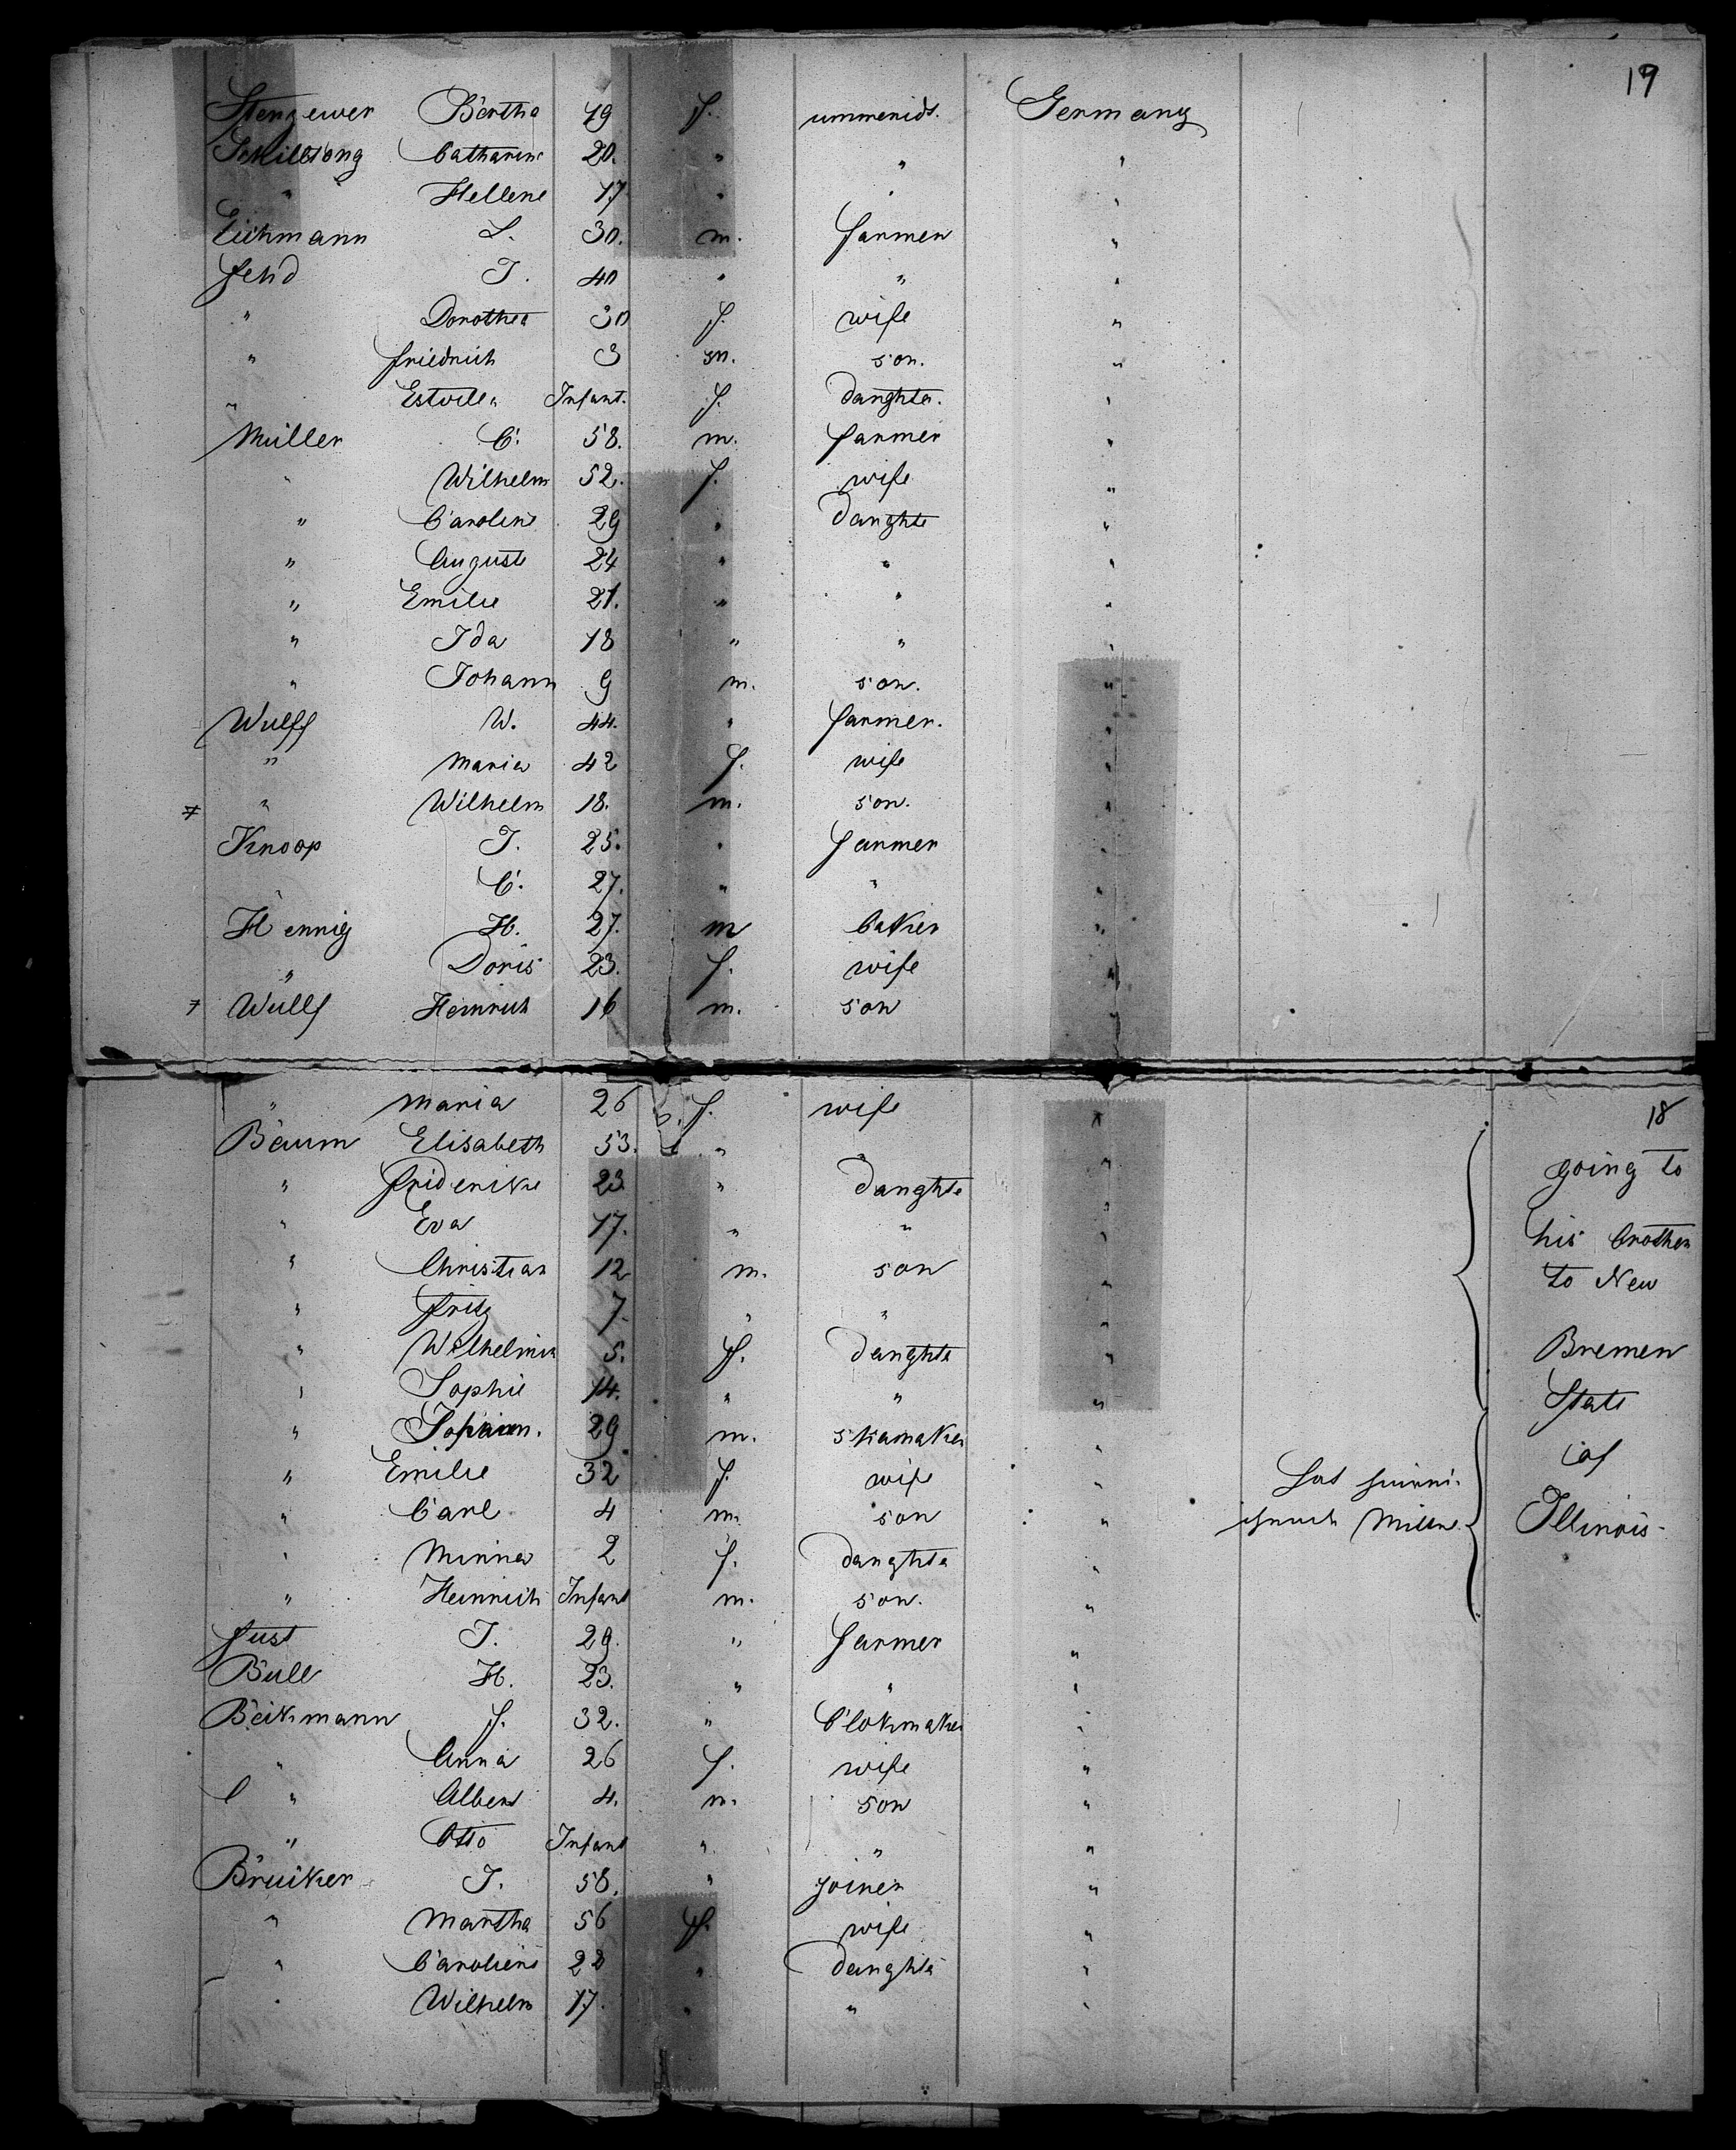 19
Bertha 19 f. unmerid. Germany
Catharine 20. " " "
" Hellene 17 " " "
Eichmann L. 30. m. farmer "
fehd J. 40 " " "
" Dorothea 30 f. wife "
" friedrich 3 m. son. "
" Infant. f. daughter. "
Müller C. 58. m. farmer "
" Wilhelm 52. f. wife "
" Caroline 29 " daughte "
" Auguste 24 " " "
" Emilie 21. " " "
" Ida 18 " " "
" Johann 9 m. son. "
Wulff W. 44. " farmer. "
" Maria 42 f. wife "
" Wilhelm 18. m. son. "
Knoop J. 25. " farmer "
" C. 27. " " "
Hennig H. 27. m baker "
" Doris 23. f. wife "
Wulff Heinrich 16 m. son "
" Maria 26 f. wife " 18
Baum Elisabeth 53. " "
" friderike 23 " daughte " going to
" Eva 17. " " " his brother
" Christian 12 m. son " to New
" fritz 7. " " "
" Wilhelmin 5. f. daughte " Bremen
" Sophie 14. " " " State
" Johann. 29 m. shamaker " of
" Emilie 32 f. wife "
" Carl 4 m. son " Illinois
" Minna 2 f. daughte "
" Heinrich Infant m. son. "
fust J. 29. " farmer "
Bull H. 23. " " "
Beikmann f. 32. " Clokmaker "
" Anna 26 f. wife "
" Albert 4. m. son "
" Otto Infant " " "
Bruiker J. 58. " joiner "
" Martha 56 f. wife "
" Caroliene 22 " daughte "
" Wilhelm 17. " " "